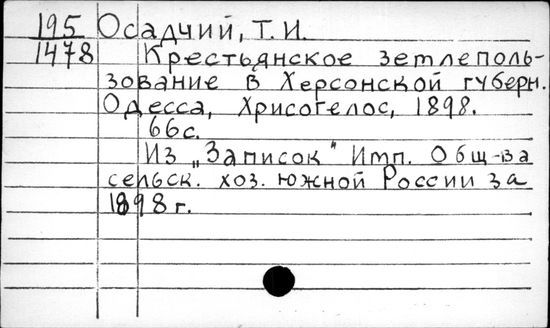 195 Осадчий, Т. И.
1478 Крестьянское землеполь-
зование в Херсонской губерн.
Одесса, Хрисогелос, 1898.
66с.
Из „Записок" Имп. Общ-ва
сельск. хоз. южной России за
1898 г.